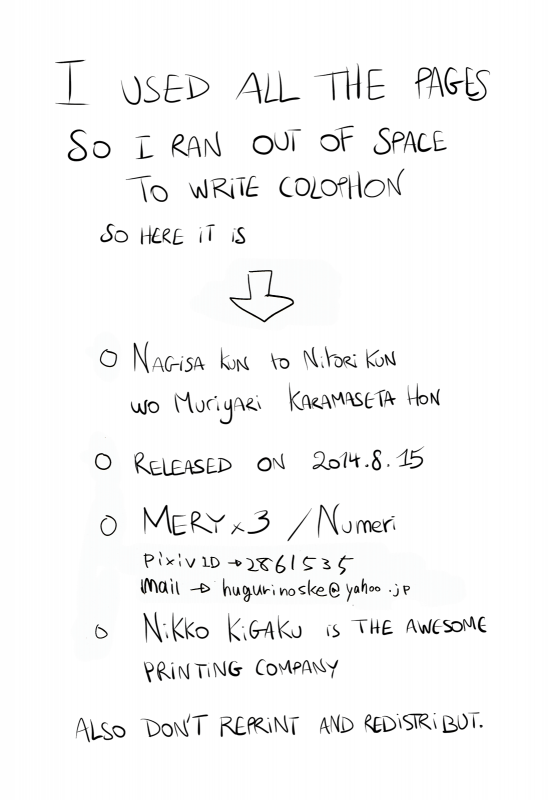 I USED ALL THE PAGES
SO I RAN OUT OF SPACE
TO WRITE COLOPHON
SO HERE IT IS
O NAGISA KUN to Nitori KUN
wo Muriyari KARAMASETA HON
O RELEASED ON 2014.8.15
O MERY x 3 / Numeri
Pixiv ID → 2861535
mail → hugurinoske@yahoo.jp
O NiKKO KiGAKU is THE AWESOME
PRINTING COMPANY
ALSO DON'T REPRINT AND REDISTRIBUT.